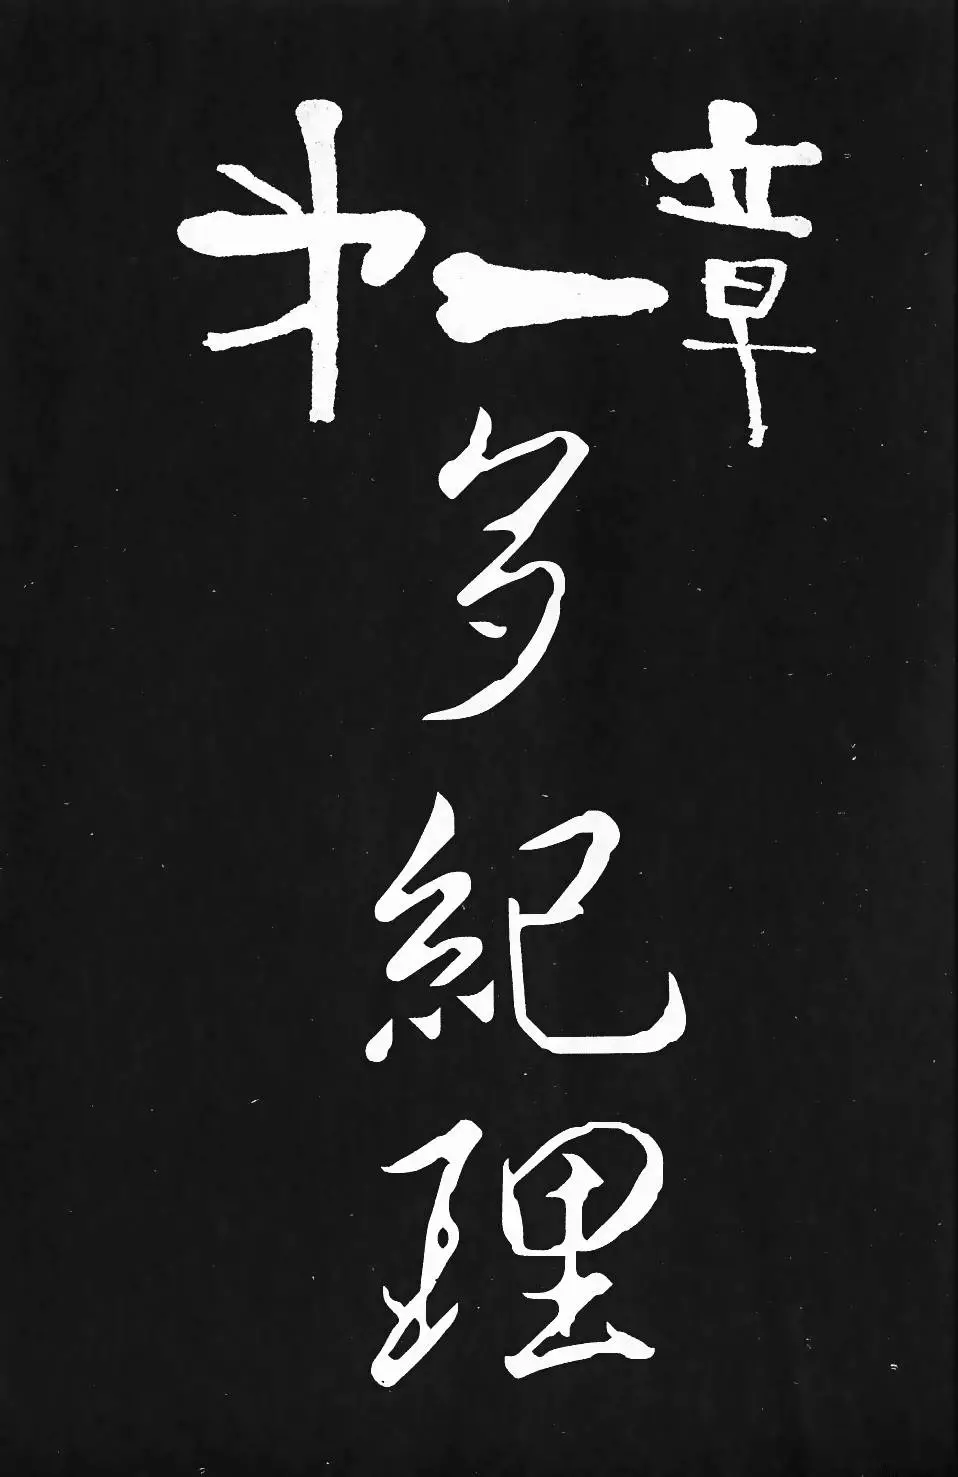 第一章
多紀理